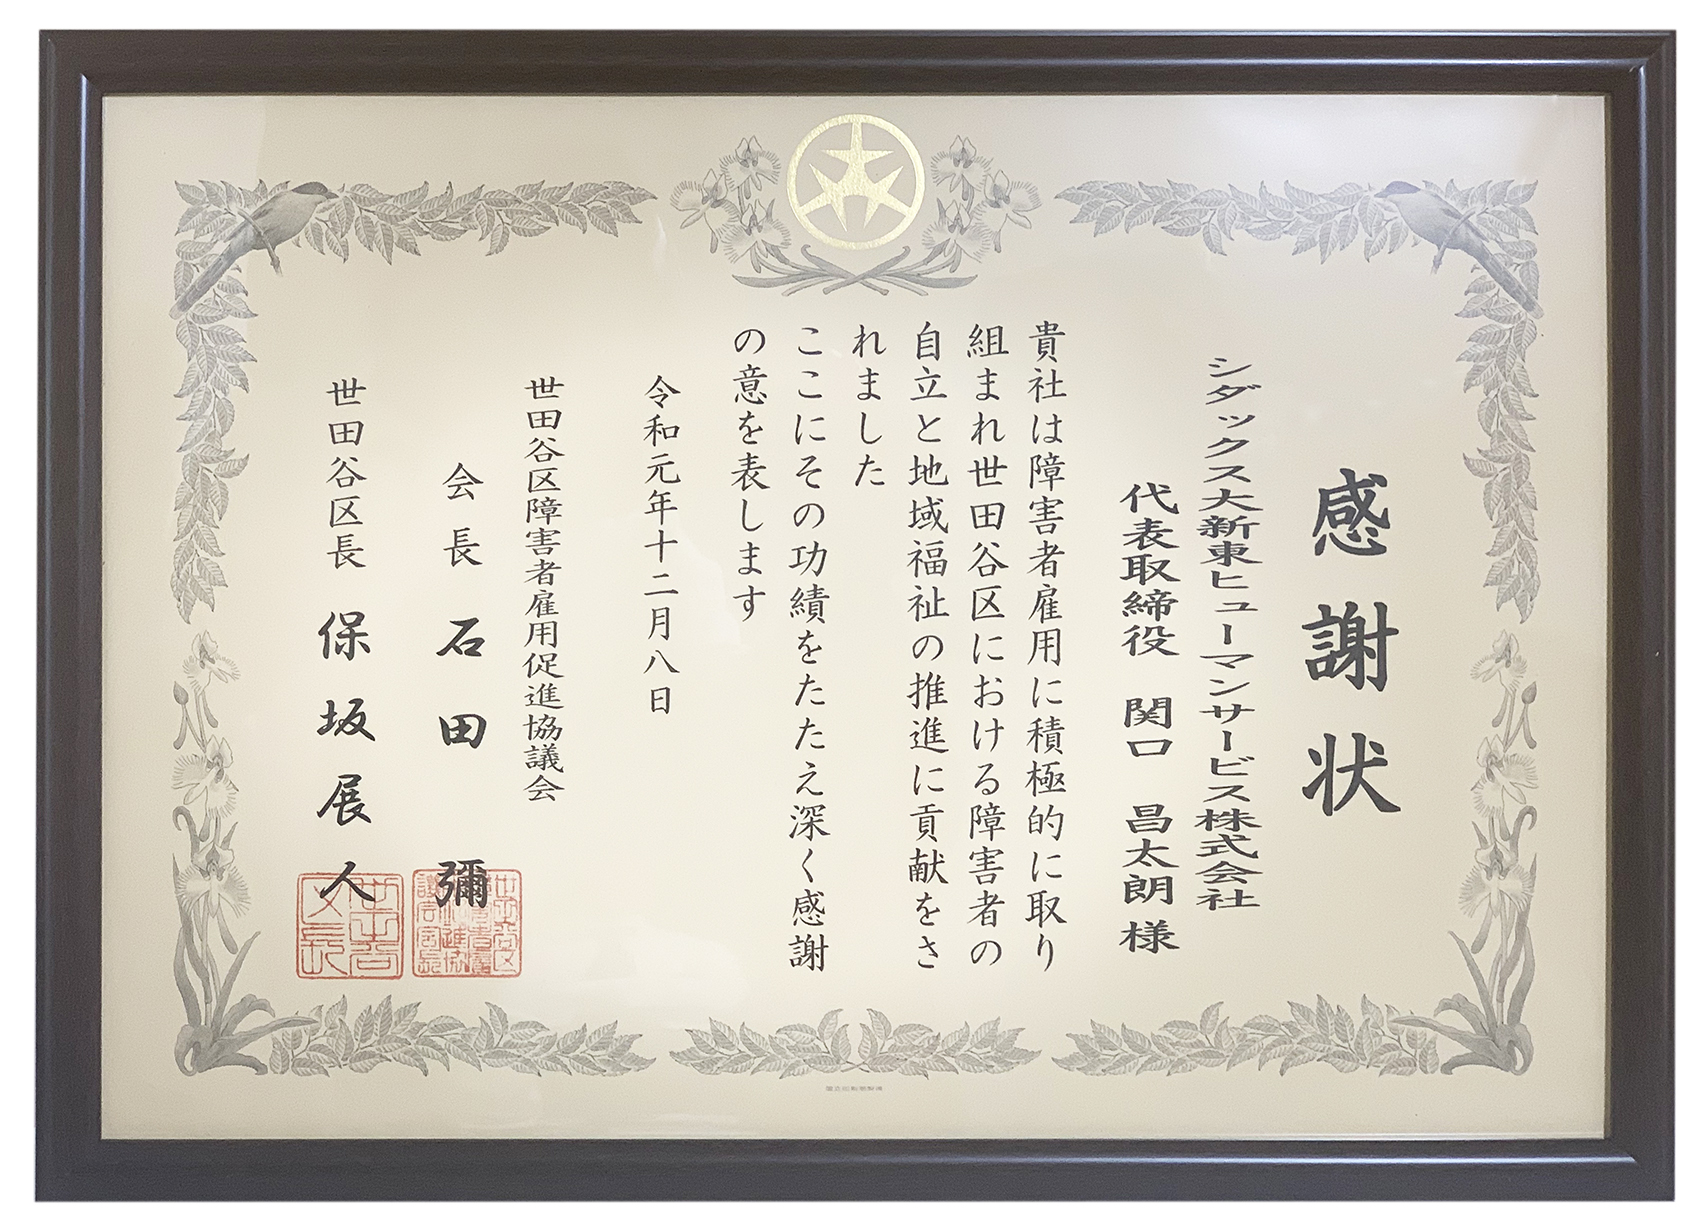 感謝状
シダックス大新東ヒューマンサービス株式会社
代表取締役 関口 昌太朗 様
貴社は障害者雇用に積極的に取り
組まれ世田谷区における障害者の
自立と地域福祉の推進に貢献をさ
れました
ここにその功績をたたえ深く感謝
の意を表します
令和元年十二月八日
世田谷区障害者雇用促進協議会
会長 石田 彌
世田谷区長 保坂展人